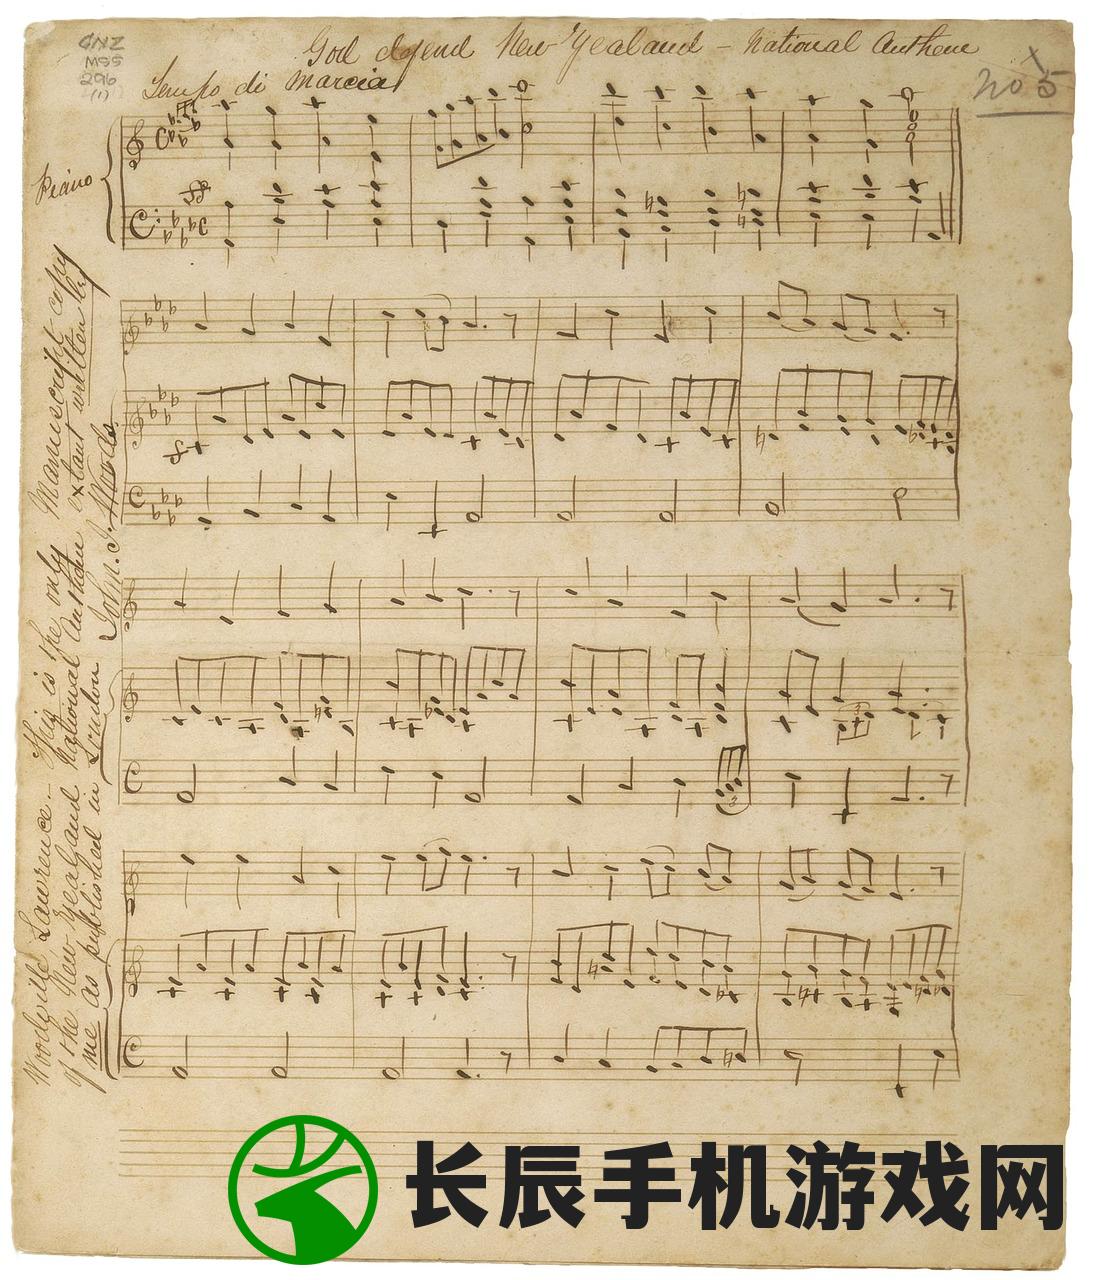 GNZ
MSS
296
(1)
God defend New Zealand - National Anthem
No 5
Tempo di Marcia
Piano
ff
f
3
3
Woodville Lawrence. - This is the only Manuscript copy
of the New Zealand National Anthem extant written by
me as published in London John. J. Woods.
长辰手机游戏网